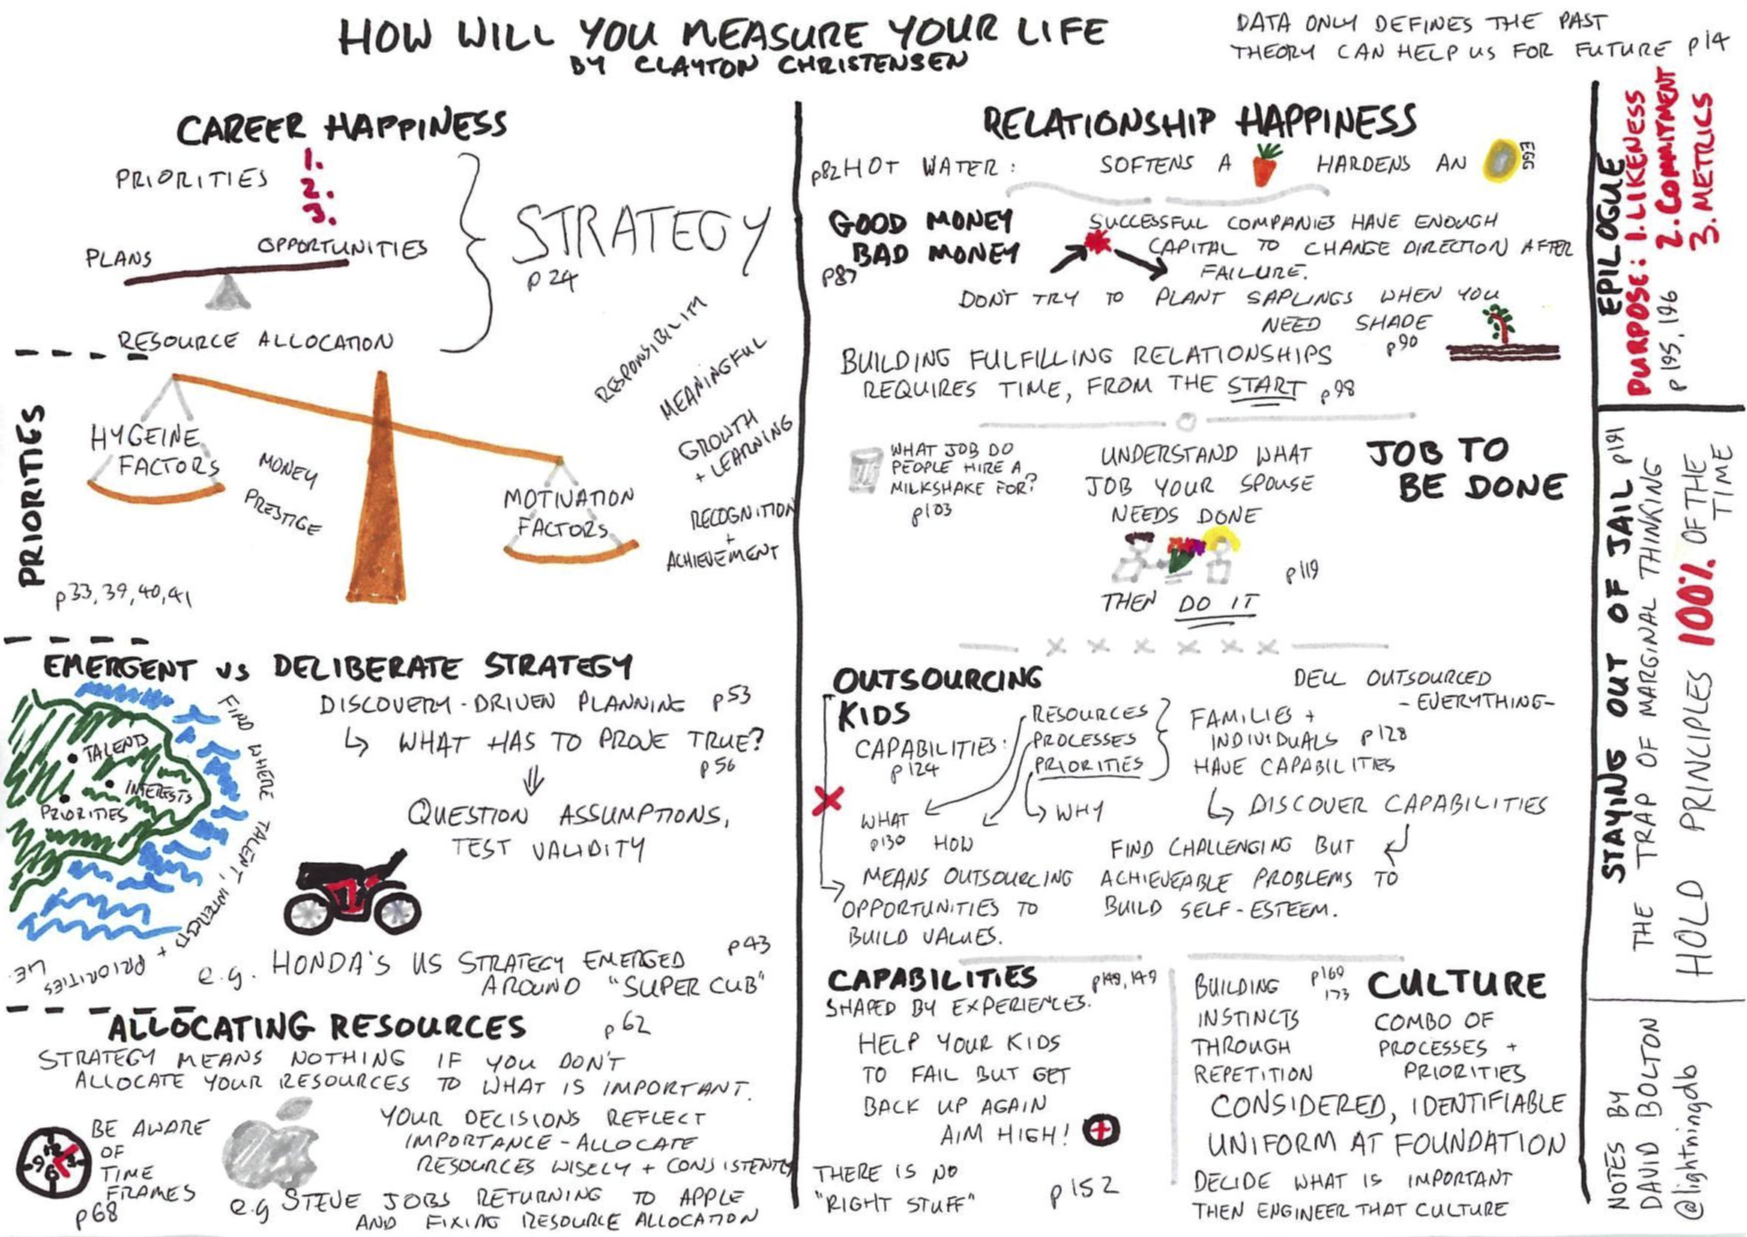 HOW WILL YOU MEASURE YOUR LIFE
BY CLAYTON CHRISTENSEN
DATA ONLY DEFINES THE PAST
THEORY CAN HELP US FOR FUTURE p14
CAREER HAPPINESS
PRIORITIES
1.
2.
3.
PLANS
OPPORTUNITIES
RESOURCE ALLOCATION
STRATEGY
p24
PRIORITIES
HYGEINE
FACTORS
MONEY
PRESTIGE
MOTIVATION
FACTORS
RESPONSIBILITY
MEANINGFUL
GROWTH
+ LEARNING
RECOGNITION
+
ACHIEVEMENT
p33, 39, 40, 41
EMERGENT vs DELIBERATE STRATEGY
TALENTS
INTERESTS
PRIORITIES
FIND WHERE TALENT, INTERESTS + PRIORITIES LIE.
DISCOVERY-DRIVEN PLANNING p53
WHAT HAS TO PROVE TRUE?
p56
QUESTION ASSUMPTIONS,
TEST VALIDITY
e.g. HONDA'S US STRATEGY EMERGED p43
AROUND "SUPER CUB"
ALLOCATING RESOURCES p62
STRATEGY MEANS NOTHING IF YOU DON'T
ALLOCATE YOUR RESOURCES TO WHAT IS IMPORTANT.
12
3
6
9
BE AWARE
OF
TIME
FRAMES
p68
YOUR DECISIONS REFLECT
IMPORTANCE - ALLOCATE
RESOURCES WISELY + CONSISTENTLY
e.g STEVE JOBS RETURNING TO APPLE
AND FIXING RESOURCE ALLOCATION
RELATIONSHIP HAPPINESS
p82 HOT WATER: SOFTENS A HARDENS AN EGG
GOOD MONEY
BAD MONEY
p87
SUCCESSFUL COMPANIES HAVE ENOUGH
CAPITAL TO CHANGE DIRECTION AFTER
FAILURE.
DON'T TRY TO PLANT SAPLINGS WHEN YOU
NEED SHADE
p90
BUILDING FULFILLING RELATIONSHIPS
REQUIRES TIME, FROM THE START p98
WHAT JOB DO
PEOPLE HIRE A
MILKSHAKE FOR?
p103
UNDERSTAND WHAT
JOB YOUR SPOUSE
NEEDS DONE
p119
THEN DO IT
JOB TO
BE DONE
OUTSOURCING
KIDS
DELL OUTSOURCED
- EVERYTHING -
CAPABILITIES:
p124
RESOURCES
PROCESSES
PRIORITIES
WHAT
p130
HOW
WHY
FAMILIES +
INDIVIDUALS p128
HAVE CAPABILITIES
DISCOVER CAPABILITIES
FIND CHALLENGING BUT
ACHIEVEABLE PROBLEMS TO
BUILD SELF-ESTEEM.
MEANS OUTSOURCING
OPPORTUNITIES TO
BUILD VALUES.
CAPABILITIES p148, 149
SHAPED BY EXPERIENCES.
HELP YOUR KIDS
TO FAIL BUT GET
BACK UP AGAIN
AIM HIGH!
THERE IS NO
"RIGHT STUFF"
p152
BUILDING
INSTINCTS
THROUGH
REPETITION
p160
173
CULTURE
COMBO OF
PROCESSES +
PRIORITIES
CONSIDERED, IDENTIFIABLE
UNIFORM AT FOUNDATION
DECIDE WHAT IS IMPORTANT
THEN ENGINEER THAT CULTURE
EPILOGUE
PURPOSE: 1. LIKENESS
2. COMMITMENT
3. METRICS
p195, 196
STAYING OUT OF JAIL p191
THE TRAP OF MARGINAL THINKING
HOLD PRINCIPLES 100% OF THE
TIME
NOTES BY
DAVID BOLTON
@lightningdb